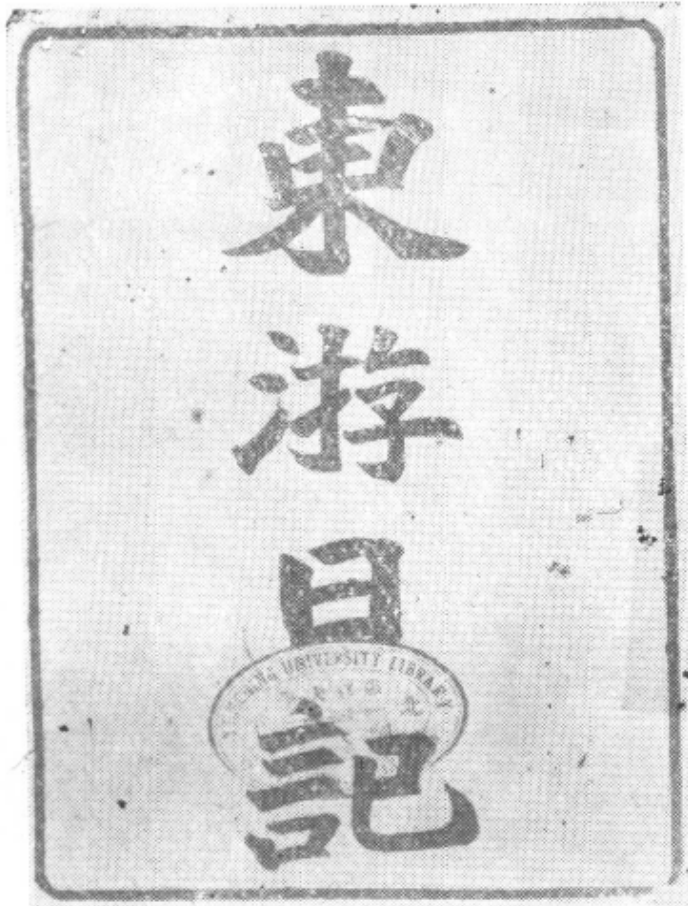 東游日記
UNIVERSITY LIBRARY